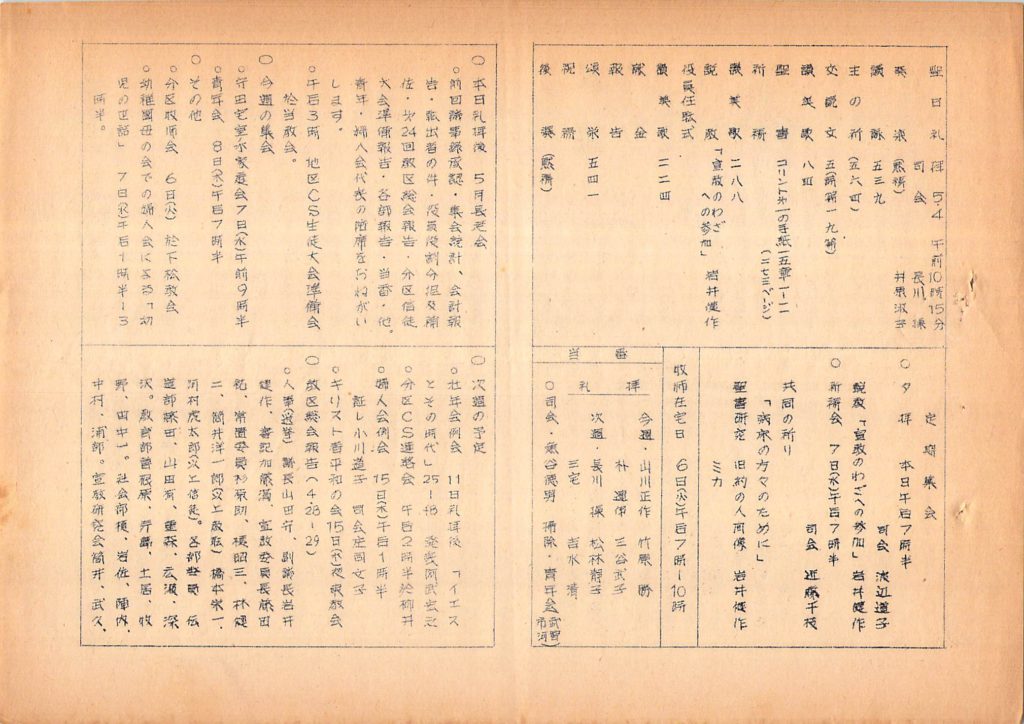 聖日礼拝 5.4 午前10時15分
司会 長川 操
奏楽 (黙祷) 井原淑子
讃詠 五三九
主の祈 (五六四)
交読文 五(詩篇一九篇)
讃美歌 八四
聖書 コリント第一の手紙一五章一-一一
(二七三ページ)
祈祷
讃美歌 二八八
説教 「宣教のわざへの参加」 岩井健作
役員任職式
讃美歌 二二四
献金
報告
頌栄 五四一
祝祷
後奏 (黙祷)
定期集会
○夕拝 本日午后7時半
司会 渡辺道子
説教「宣教のわざへの参加」 岩井健作
○祈祷会 7日(水)午后7時半
司会 近藤千枝
共同の祈り
「病床の方々のために」
聖書研究 旧約の人間像 岩井健作
ミカ
牧師在宅日 6日(火)午后7時-10時
当番
礼拝
今週・山川正作 竹原 勝
朴 三谷武子
次週・長川 操 松林静子
三宅 吉水 清
○司会・ 掃除・青年会
○本日礼拝後 5月長老会
○前回議事録承認・集会統計、会計報
告・転出者の件 役員役割分担及補
佐・第24回教区総会報告・分区信徒
大会準備報告・各部報告・当番・他。
青年・婦人会代表の陪席をおねがい
します。
○午后3時 地区CS生徒大会準備会
於当教会。
○今週の集会
○守田宅壷家庭会7日(水)午前9時半
○青年会 8日(木)午后7時半
○その他
○分区牧師会 6日(火) 於下松教会
○幼稚園母の会での婦人会による「幼
児の世話」 7日(水)午后1時半-3
時半。
○次週の予定
○壮年会例会 11日礼拝後 「イエス
とその時代」25-48
○分区CS連絡会 午后2時半於柳井
○婦人会例会 15日(木)午后1時半
証し 小川道子 司会
キリスト者平和の会15日(木)夜
○教区総会報告(4.28-29)
○人事(選挙) 議長山田守、副議長岩井
健作、書記加藤満、宣教委員長藤田
祐、常置委員杉原助、横昭三、林健
二、筒井洋一郎(以上教職) 橋本栄一、
河村虎太郎(以上信徒)。各部委員 伝
道部藤田、山田有、重森、広瀬、深
沢。教育部曽根原、 土居、牧
野、田中一。社会部横、岩佐、陣内、
中村、浦部。宣教研究会筒井、武久、